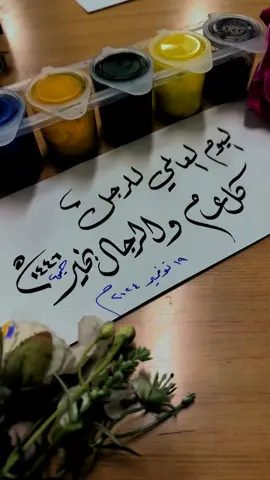 اليوم العالمي للرجل
كل عام والرجال بخير
١٤٤٦ هـ
١٩ نوفمبر ٢٠٢٤ م